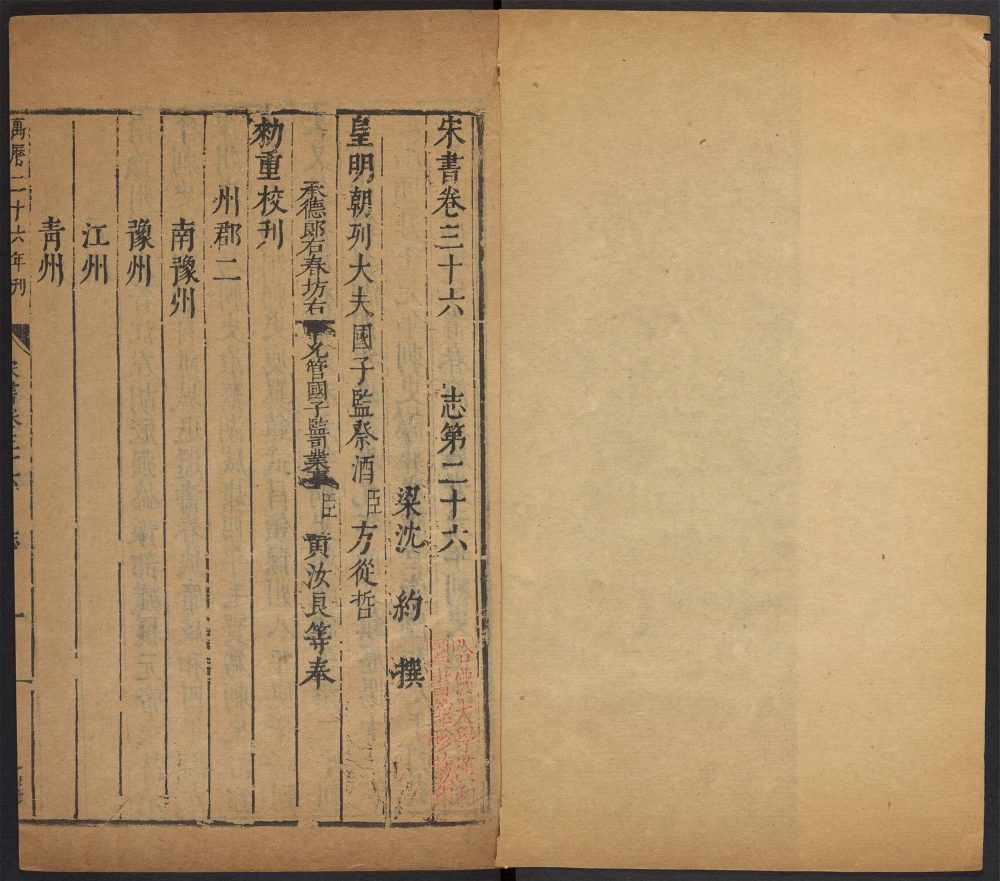 宋書卷三十六　志第二十六
梁沈約撰
皇明朝列大夫國子監祭酒臣方從哲
承德郎右春坊右中允管國子監司業事臣黃汝良等奉
勑重校刊
州郡二
南豫州
豫州
江州
青州
萬曆二十六年刊
宋書卷三十六 志 一
哈佛大學漢和
圖書館珍藏印